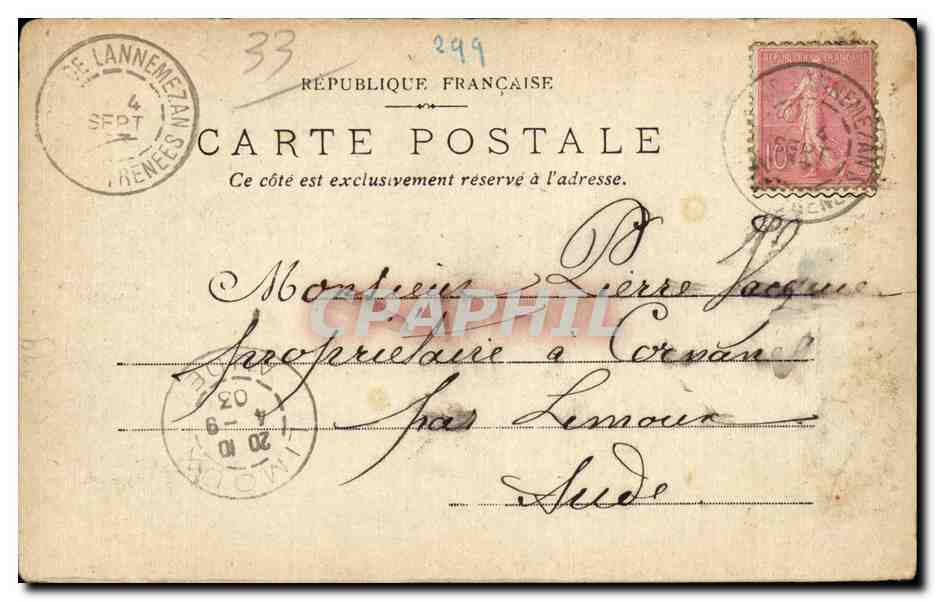 DE LANNEMEZAN
4
SEPT
PYRENEES
33
299
RÉPUBLIQUE FRANÇAISE
CARTE POSTALE
Ce côté est exclusivement réservé à l'adresse.
REPUBLIQUE FRANCAISE
10
NEMEZAN
RENEES
Monsieur Pierre Jacques
CPAPHIL
propriétaire à
par Limoux
Aude
LIMOUX
AUDE
20 10
4 - 9
03